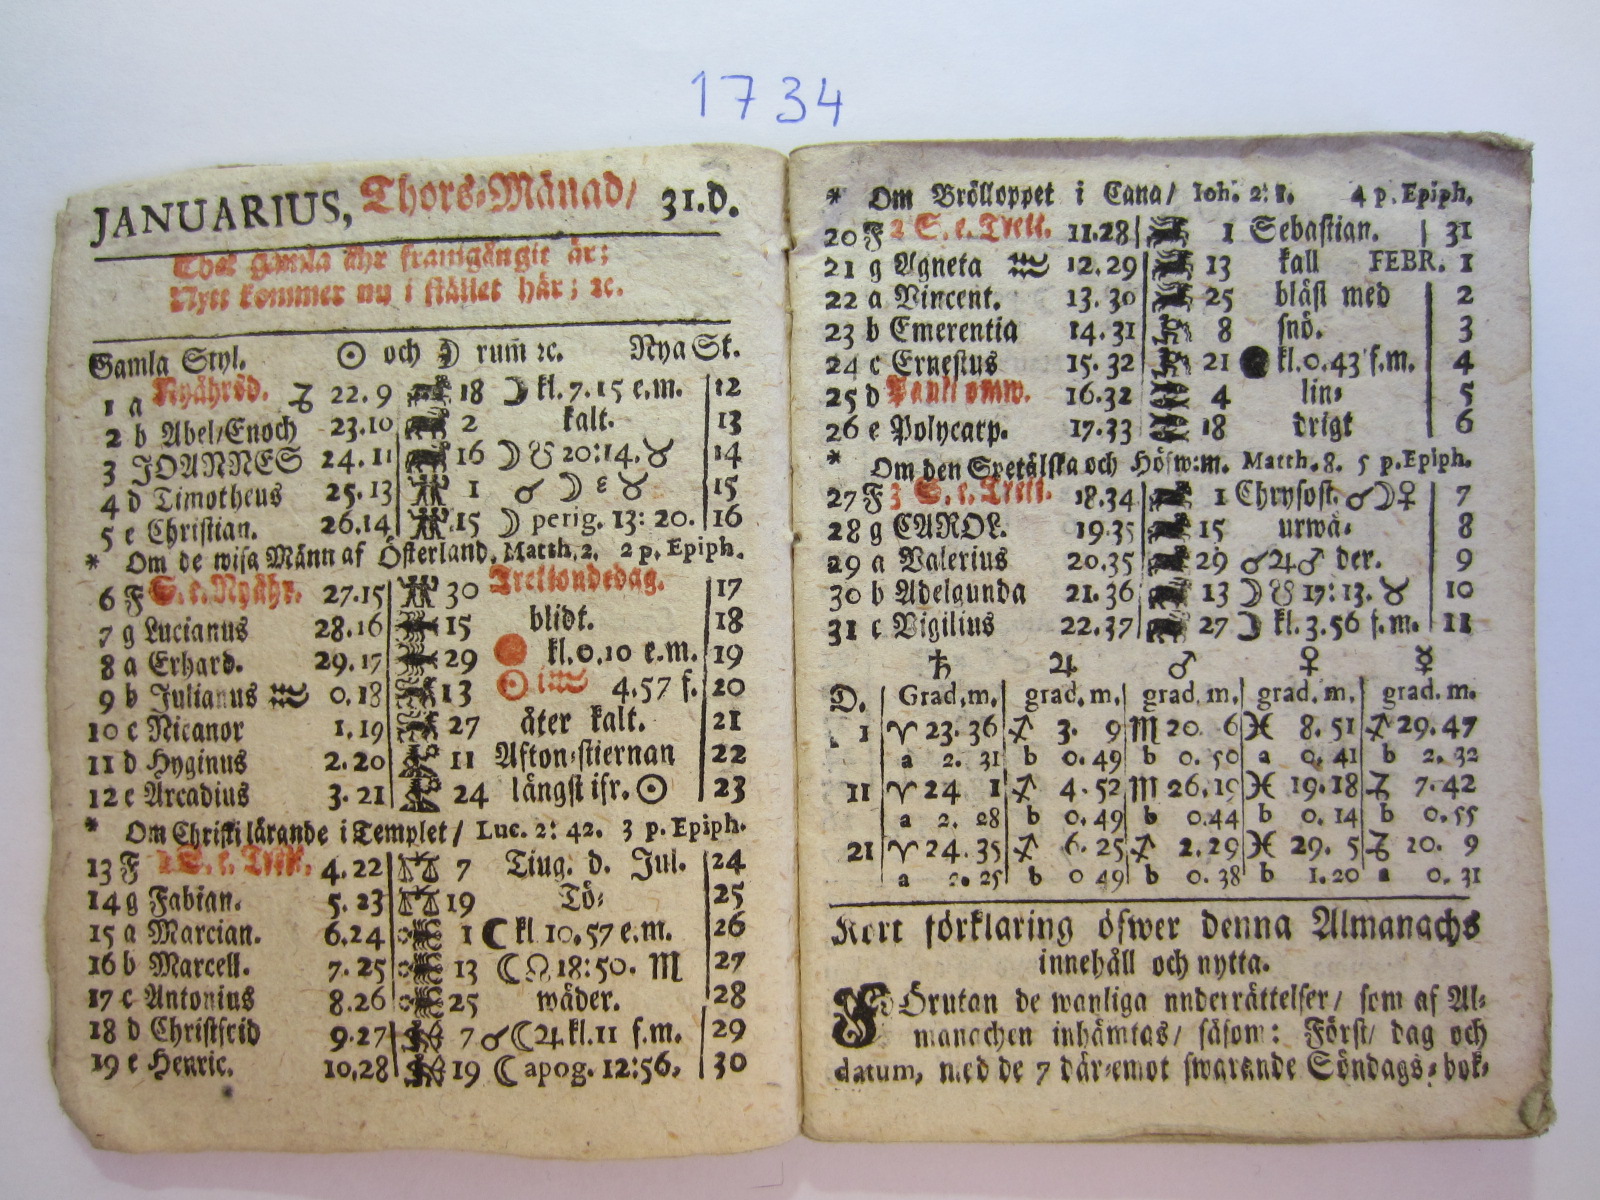 1734
JANUARIUS, Thors-Månad/ 31.D.
Thet gamla åhr framgångit är;
Nytt kommer nu i stället här; ꝛc.
Gamla Styl. ☉ och ☽ rum̃ ꝛc. Nya St.
1 a Nyåhrsd. ♑ 22. 9 18 ☽ kl. 7. 15 e.m. 12
2 b Abel/Enoch 23.10 2 kalt. 13
3 JOANNES 24. 11 16 ☽ ☋ 20:14. ♉ 14
4 d Timotheus 25. 13 1 ☌ ☽ ε ♉ 15
5 e Christian. 26.14 15 ☽ perig. 13: 20. 16
* Om de wisa Männ af Österland. Matth. 2. 2 p. Epiph.
6 F S. e. Nyåhr. 27.15 30 Trettondedag. 17
7 g Lucianus 28.16 15 blidt. 18
8 a Erhard. 29. 17 29 kl. 0. 10 e.m. 19
9 b Julianus ♒ 0. 18 13 ☉ i ♒ 4.57 f. 20
10 c Nicanor 1. 19 27 åter kalt. 21
11 d Hyginus 2. 20 11 Afton-stiernan 22
12 e Arcadius 3. 21 24 längst ifr. ☉ 23
* Om Christi lärande i Templet/ Luc. 2: 42. 3 p. Epiph.
13 F 1 S. e. Trett. 4. 22 7 Tiug. d. Jul. 24
14 g Fabian. 5. 23 19 Tö- 25
15 a Marcian. 6.24 1 ☾ kl 10. 57 e.m. 26
16 b Marcell. 7. 25 13 ☾ ☊ 18:50. ♏ 27
17 c Antonius 8.26 25 wäder. 28
18 d Christfrid 9.27 7 ☌ ☾ ♃ kl. 11 f.m. 29
19 e Henric. 10.28 19 ☾ apog. 12:56. 30
* Om Brölloppet i Cana/ Ioh. 2: 1. 4 p. Epiph.
20 F 2 S. e. Trett. 11.28 1 Sebastian. 31
21 g Agneta ♒ 12.29 13 kall FEBR. 1
22 a Vincent. 13. 30 25 bläst med 2
23 b Emerentia 14.31 8 snö. 3
24 c Ernestus 15. 32 21 ● kl. 0.43 f.m. 4
25 d Pauli omw. 16.32 4 lin- 5
26 e Polycarp. 17.33 18 drigt 6
* Om den Spetälska och Höfw:m. Matth. 8. 5 p. Epiph.
27 F 3 S. e. Trett. 18.34 1 Chrysost. ☌ ☽ ♀ 7
28 g CAROL. 19.35 15 urwä- 8
29 a Valerius 20.35 29 ☌ ♃ ♂ der. 9
30 b Adelgunda 21. 36 13 ☽ ☋ 17: 13. ♉ 10
31 c Vigilius 22.37 27 ☽ kl. 3.56 f.m. 11
♄ ♃ ♂ ♀ ☿
D. Grad.m. grad. m. grad. m. grad. m. grad. m.
1 ♈ 23. 36 ♐ 3. 9 ♏ 20 6 ♓ 8. 51 ♐ 29. 47
a 2. 31 b 0.49 b 0. 50 a 0. 41 b 2. 32
11 ♈ 24 1 ♐ 4. 52 ♏ 26.19 ♓ 19.18 ♑ 7. 42
a 2. 28 b 0.49 b 0.44 b 0. 14 b 0. 55
21 ♈ 24. 35 ♐ 6. 25 ♐ 2.29 ♓ 29. 5 ♑ 20. 9
a 2. 25 b 0 49 b 0. 38 b 1. 20 a 0. 31
Kort förklaring öfwer denna Almanachs
innehåll och nytta.
FÖrutan de wanliga underrättelser/ som af Al-
manachen inhämtas/ såsom: Först/ dag och
datum, med de 7 där-emot swarande Söndags-bok-